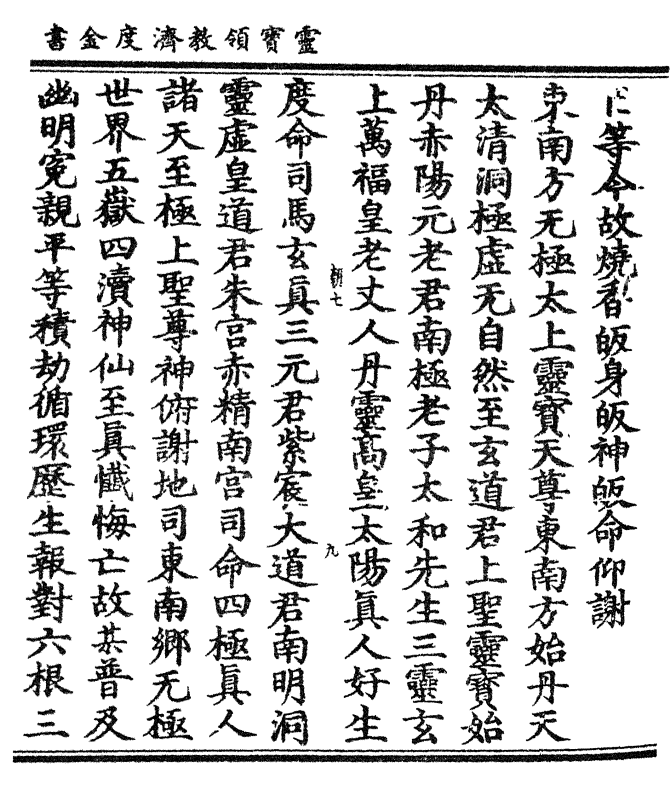 靈寶領教濟度金書
等今故燒香皈身皈神皈命仰謝
東南方无極太上靈寶天尊東南方始丹天
太清洞極虛无自然至玄道君上聖靈寶始
丹赤陽元老君南極老子太和先生三靈玄
上萬福皇老丈人丹靈高皇太陽眞人好生
朝七
九
度命司馬玄眞三元君紫宸大道君南明洞
靈虛皇道君朱宮赤精南宮司命四極眞人
諸天至極上聖尊神俯謝地司東南鄉无極
世界五嶽四瀆神仙至眞懴悔亡故某普及
幽明寃親平等積劫循環歷生報對六根三